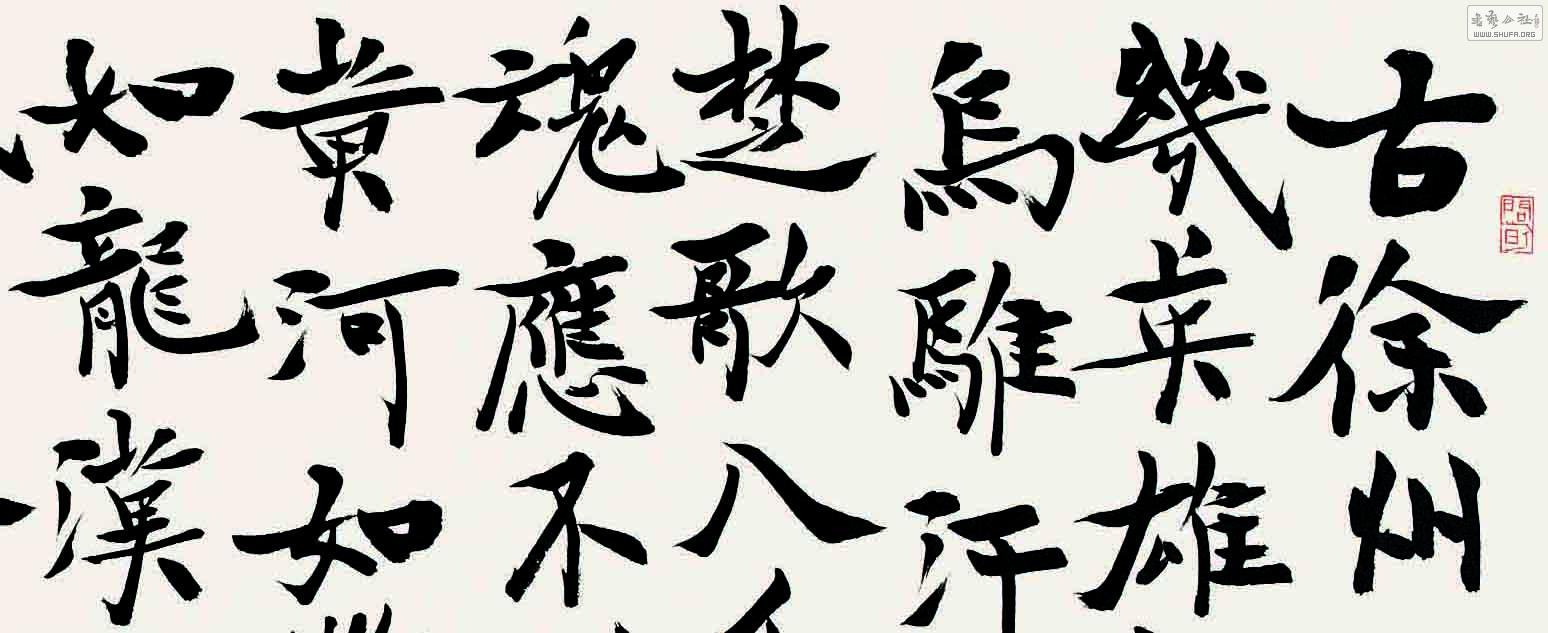 古徐州
幾英雄
烏騅汗
楚歌八
魂應不
黄河如
如龍漢
WWW.SHUFA.ORG